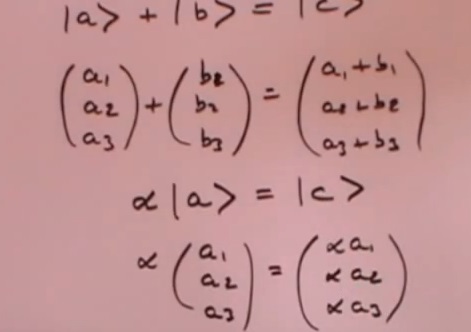 |a> + |b> = |c>
(a₁ a₂ a₃) + (b₂ b₂ b₃) = (a₁+b₁ a₂+b₂ a₃+b₃)
α |a> = |c>
α (a₁ a₂ a₃) = (αa₁ αa₂ αa₃)